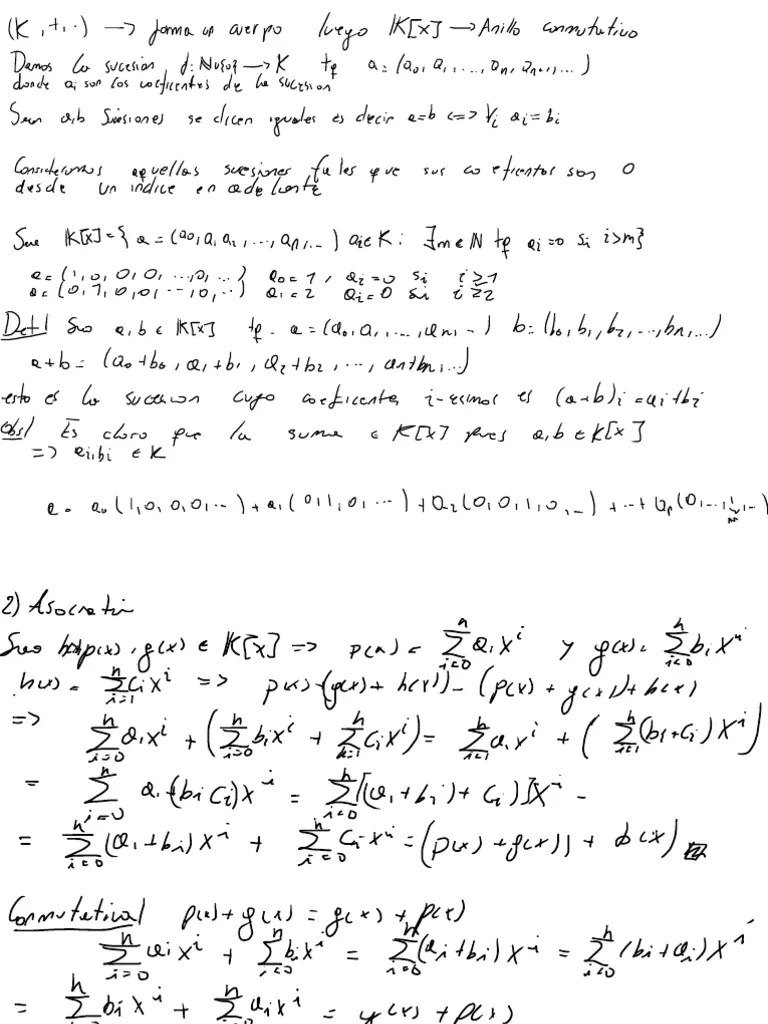 (K,+,·) → forma un cuerpo luego K[x] → Anillo conmutativo
Damos la sucesión f: N∪{0} → K tq a=(a0,a1,...,an,an+1,...)
donde ai son los coeficientes de la sucesion
Sean a,b sucesiones se dicen iguales es decir a=b <=> ∀i ai=bi
Consideramos aquellas sucesiones tales que sus coeficientes son 0
desde un indice en adelante
Sea K[x]={ a=(a0,a1,a2,...,an,...) ai∈K: ∃m∈N tq ai=0 si i>m}
a=(1,0,0,0,...,0,...) a0=1, ai=0 si i≥1
a=(0,1,0,0,...,0,...) a1=2 ai=0 si i≥2
Def| Sea a,b ∈ K[x] tq. a=(a0,a1,...,an,...) b=(b0,b1,b2,...,bn,...)
a+b=(a0+b0,a1+b1,a2+b2,...,an+bn,...)
esto es la sucesion cuyo coeficientes i-esimos es (a+b)i=ai+bi
Obs| Es claro que la suma ∈ K[x] pues a,b∈K[x]
=> ai,bi ∈ K
a= a0(1,0,0,0,...)+a1(0,1,0,...)+a2(0,0,1,0,...)+...+ap(0,...,1,...)
2) Asociativa
Sea p(x),g(x) ∈ K[x] => p(x)= ∑_{i=0}^n ai x^i y g(x)= ∑_{i=0}^n bi x^i
h(x)= ∑_{i=1}^n ci x^i => p(x)+(g(x)+h(x))=(p(x)+g(x))+h(x)
=> ∑_{i=0}^n ai x^i + (∑_{i=0}^n bi x^i + ∑_{i=1}^n ci x^i) = ∑_{i=1}^n ai x^i + (∑_{i=1}^n (bi+ci) x^i)
= ∑_{i=0}^n ai+(bi ci) x^i = ∑_{i=0}^n [(ai+bi)+ci)] x^i =
= ∑_{i=0}^n (ai+bi) x^i + ∑_{i=0}^n ci x^i = (p(x)+g(x))+h(x)
Conmutativa| p(x)+g(x)=g(x)+p(x)
∑_{i=0}^n ai x^i + ∑_{i=0}^n bi x^i = ∑_{i=0}^n (ai+bi) x^i = ∑_{i=0}^n (bi+ai) x^i
= ∑ bi x^i + ∑ ai x^i = g(x)+p(x)